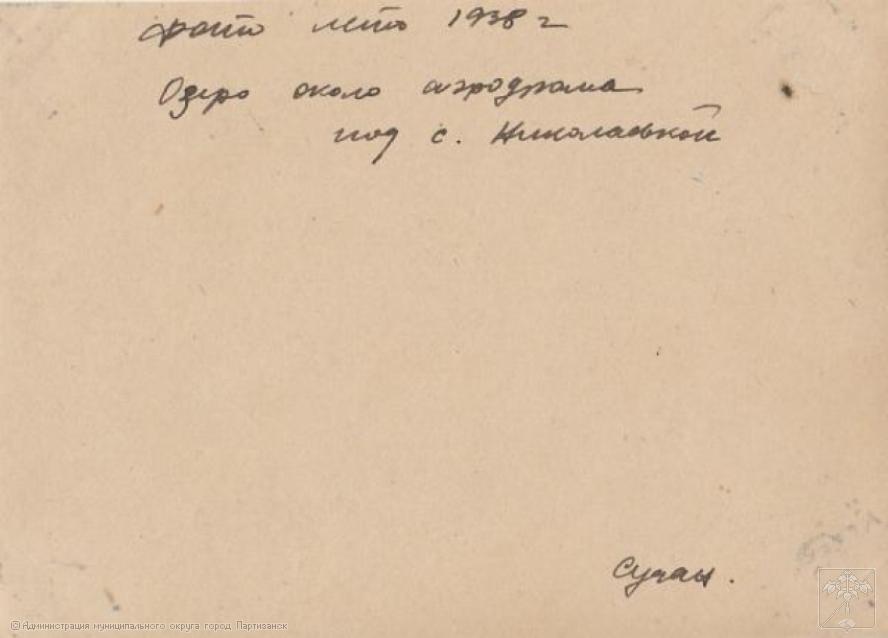 фото лето 1938 г
Озеро около аэродрома
под с. Николаевкой
Сучан.
© Администрация муниципального округа город Партизанск